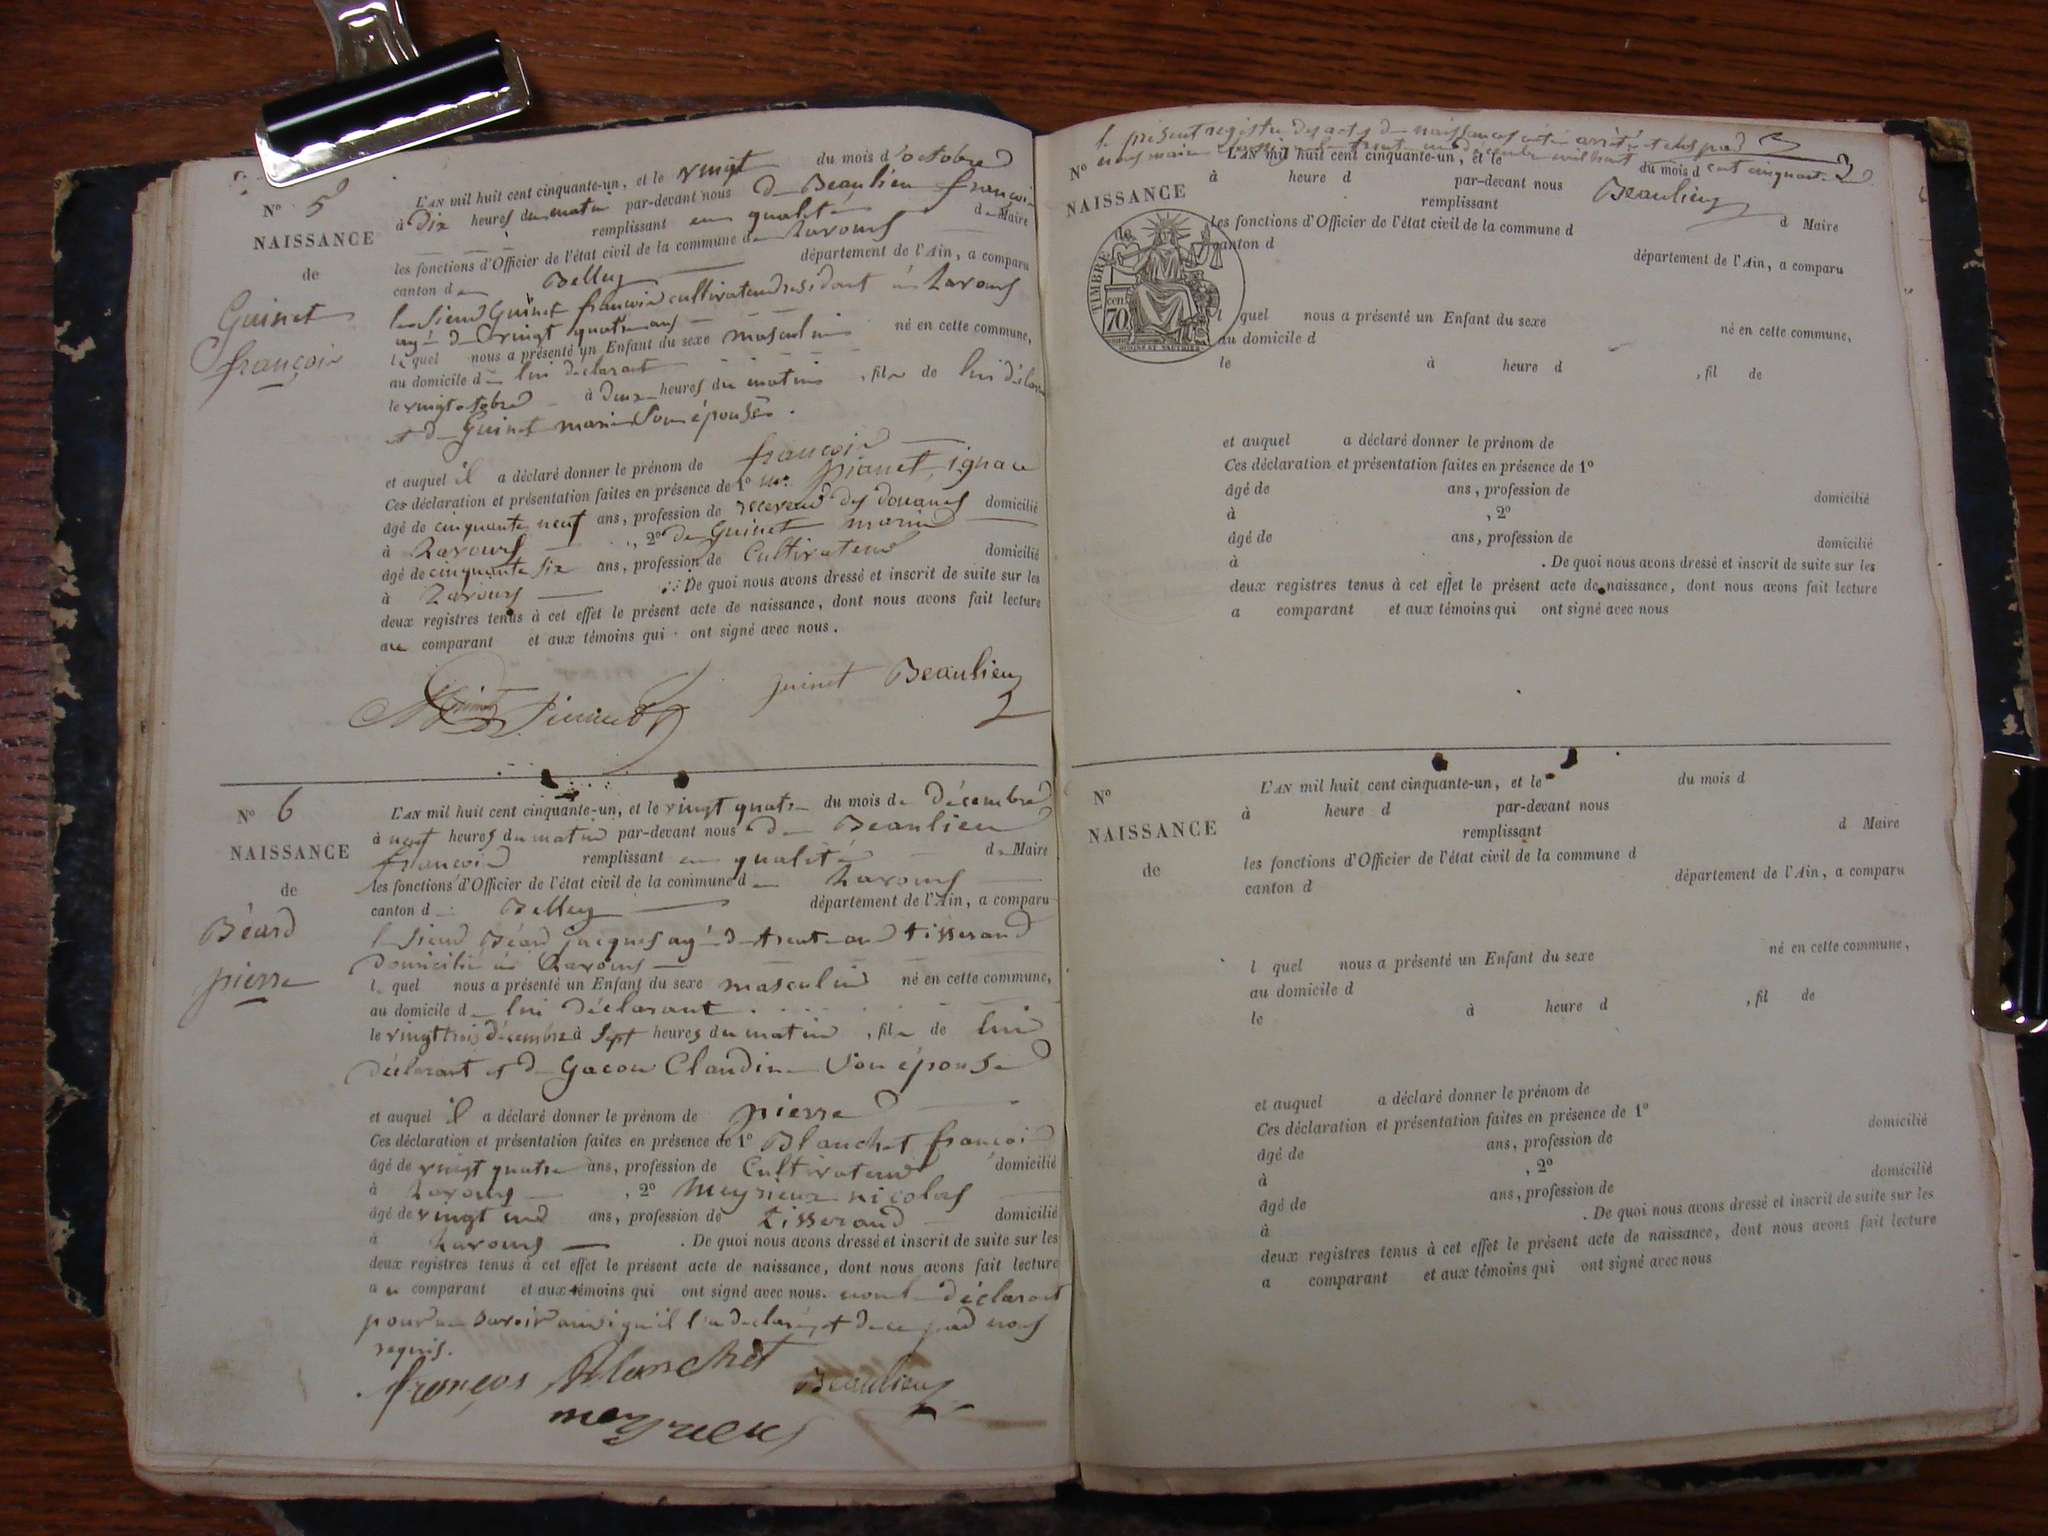 N° 5
NAISSANCE
de
Guinet
françois
L'AN mil huit cent cinquante-un, et le vingt du mois d'octobre
à dix heures du matin par-devant nous de Beaulieu françois
remplissant en qualité de Maire
les fonctions d'Officier de l'état civil de la commune de Lavours
canton de Belley département de l'Ain, a comparu
le sieur Guinet françois cultivateur résidant à Lavours
agé de vingt quatre ans
lequel nous a présenté un Enfant du sexe masculin né en cette commune,
au domicile de lui déclarant
le vingt octobre à deux heures du matin, fils de lui déclarant
et de Guinet marie son épouse.
et auquel il a déclaré donner le prénom de françois
Ces déclaration et présentation faites en présence de 1° mr. ignace
âgé de cinquante neuf ans, profession de receveur des douanes domicilié
à Lavours, 2° de Guinet marin
âgé de cinquante six ans, profession de Cultivateur domicilié
à Lavours . De quoi nous avons dressé et inscrit de suite sur les
deux registres tenus à cet effet le présent acte de naissance, dont nous avons fait lecture
au comparant et aux témoins qui ont signé avec nous.
guinet Beaulieu
N° 6
NAISSANCE
de
Béard
pierre
L'AN mil huit cent cinquante-un, et le vingt quatre du mois de décembre
à neuf heures du matin par-devant nous de Beaulieu
françois remplissant en qualité de Maire
les fonctions d'Officier de l'état civil de la commune de Lavours
canton de Belley département de l'Ain, a comparu
le sieur Béard jacques agé de trente ans tisserand
domicilié à Lavours
lequel nous a présenté un Enfant du sexe masculin né en cette commune,
au domicile de lui déclarant
le vingt trois décembre à sept heures du matin, fils de lui
déclarant et de Gacon Claudine son épouse
et auquel il a déclaré donner le prénom de pierre
Ces déclaration et présentation faites en présence de 1° Blanchet françois
âgé de vingt quatre ans, profession de Cultivateur domicilié
à Lavours, 2° meyrieux nicolas
âgé de vingt ans, profession de tisserand domicilié
à Lavours . De quoi nous avons dressé et inscrit de suite sur les
deux registres tenus à cet effet le présent acte de naissance, dont nous avons fait lecture
au comparant et aux témoins qui ont signé avec nous. non le déclarant
pour ne savoir ainsi qu'il l'a declaré et de ce par nous
requis.
françois Blanchet
Beaulieu
meyrieux
le présent registre des actes de naissances été arrêté et clos par
nous maire le trente un décembre mil huit
cent cinquante
Beaulieu
N°
NAISSANCE
de
TIMBRE
70 cen
L'AN mil huit cent cinquante-un, et le du mois d
à heure d par-devant nous
remplissant d Maire
les fonctions d'Officier de l'état civil de la commune d
canton d département de l'Ain, a comparu
l quel nous a présenté un Enfant du sexe né en cette commune,
au domicile d
le à heure d , fil de
et auquel a déclaré donner le prénom de
Ces déclaration et présentation faites en présence de 1°
âgé de ans, profession de domicilié
à , 2°
âgé de ans, profession de domicilié
à . De quoi nous avons dressé et inscrit de suite sur les
deux registres tenus à cet effet le présent acte de naissance, dont nous avons fait lecture
a comparant et aux témoins qui ont signé avec nous
N°
NAISSANCE
de
L'AN mil huit cent cinquante-un, et le du mois d
à heure d par-devant nous
remplissant d Maire
les fonctions d'Officier de l'état civil de la commune d
canton d département de l'Ain, a comparu
l quel nous a présenté un Enfant du sexe né en cette commune,
au domicile d
le à heure d , fil de
et auquel a déclaré donner le prénom de
Ces déclaration et présentation faites en présence de 1°
âgé de ans, profession de domicilié
à , 2°
âgé de ans, profession de domicilié
à . De quoi nous avons dressé et inscrit de suite sur les
deux registres tenus à cet effet le présent acte de naissance, dont nous avons fait lecture
a comparant et aux témoins qui ont signé avec nous